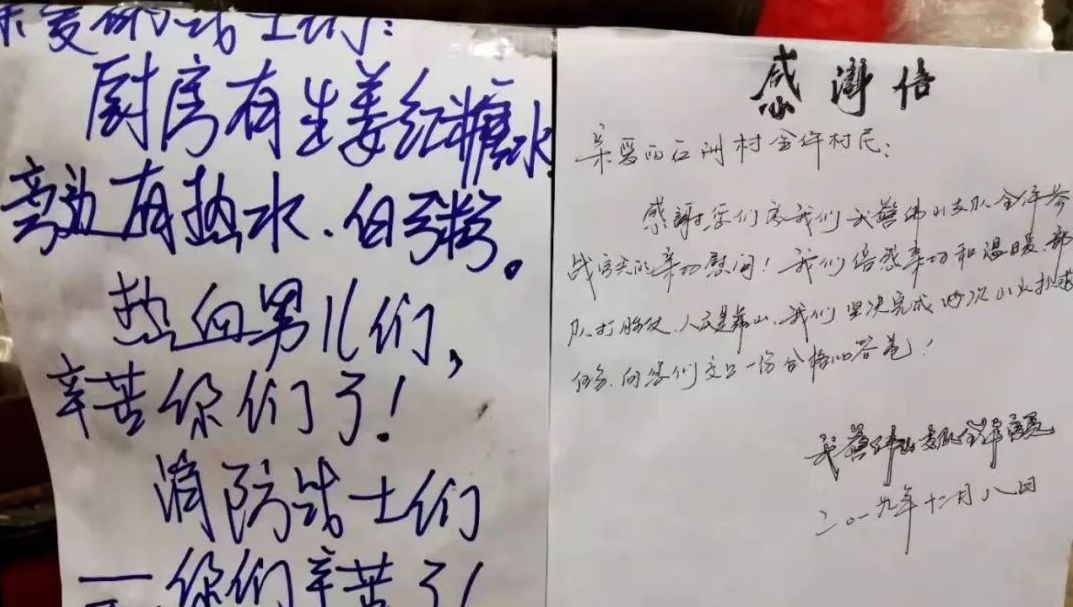 亲爱的战士们：
厨房有生姜红糖水，
旁边有热水、白粥。
热血男儿们，
辛苦你们了！
消防战士们
——你们辛苦了！
感谢信
亲爱的石洲村全体村民：
感谢您们为我们武警佛山支队全体参
战官兵的亲切慰问！我们倍感亲切和温暖，部
队打胜仗，人民是靠山，我们坚决完成此次山火扑救
任务，向您们交上一份合格的答卷！
武警佛山支队全体官兵
二〇一九年十二月八日